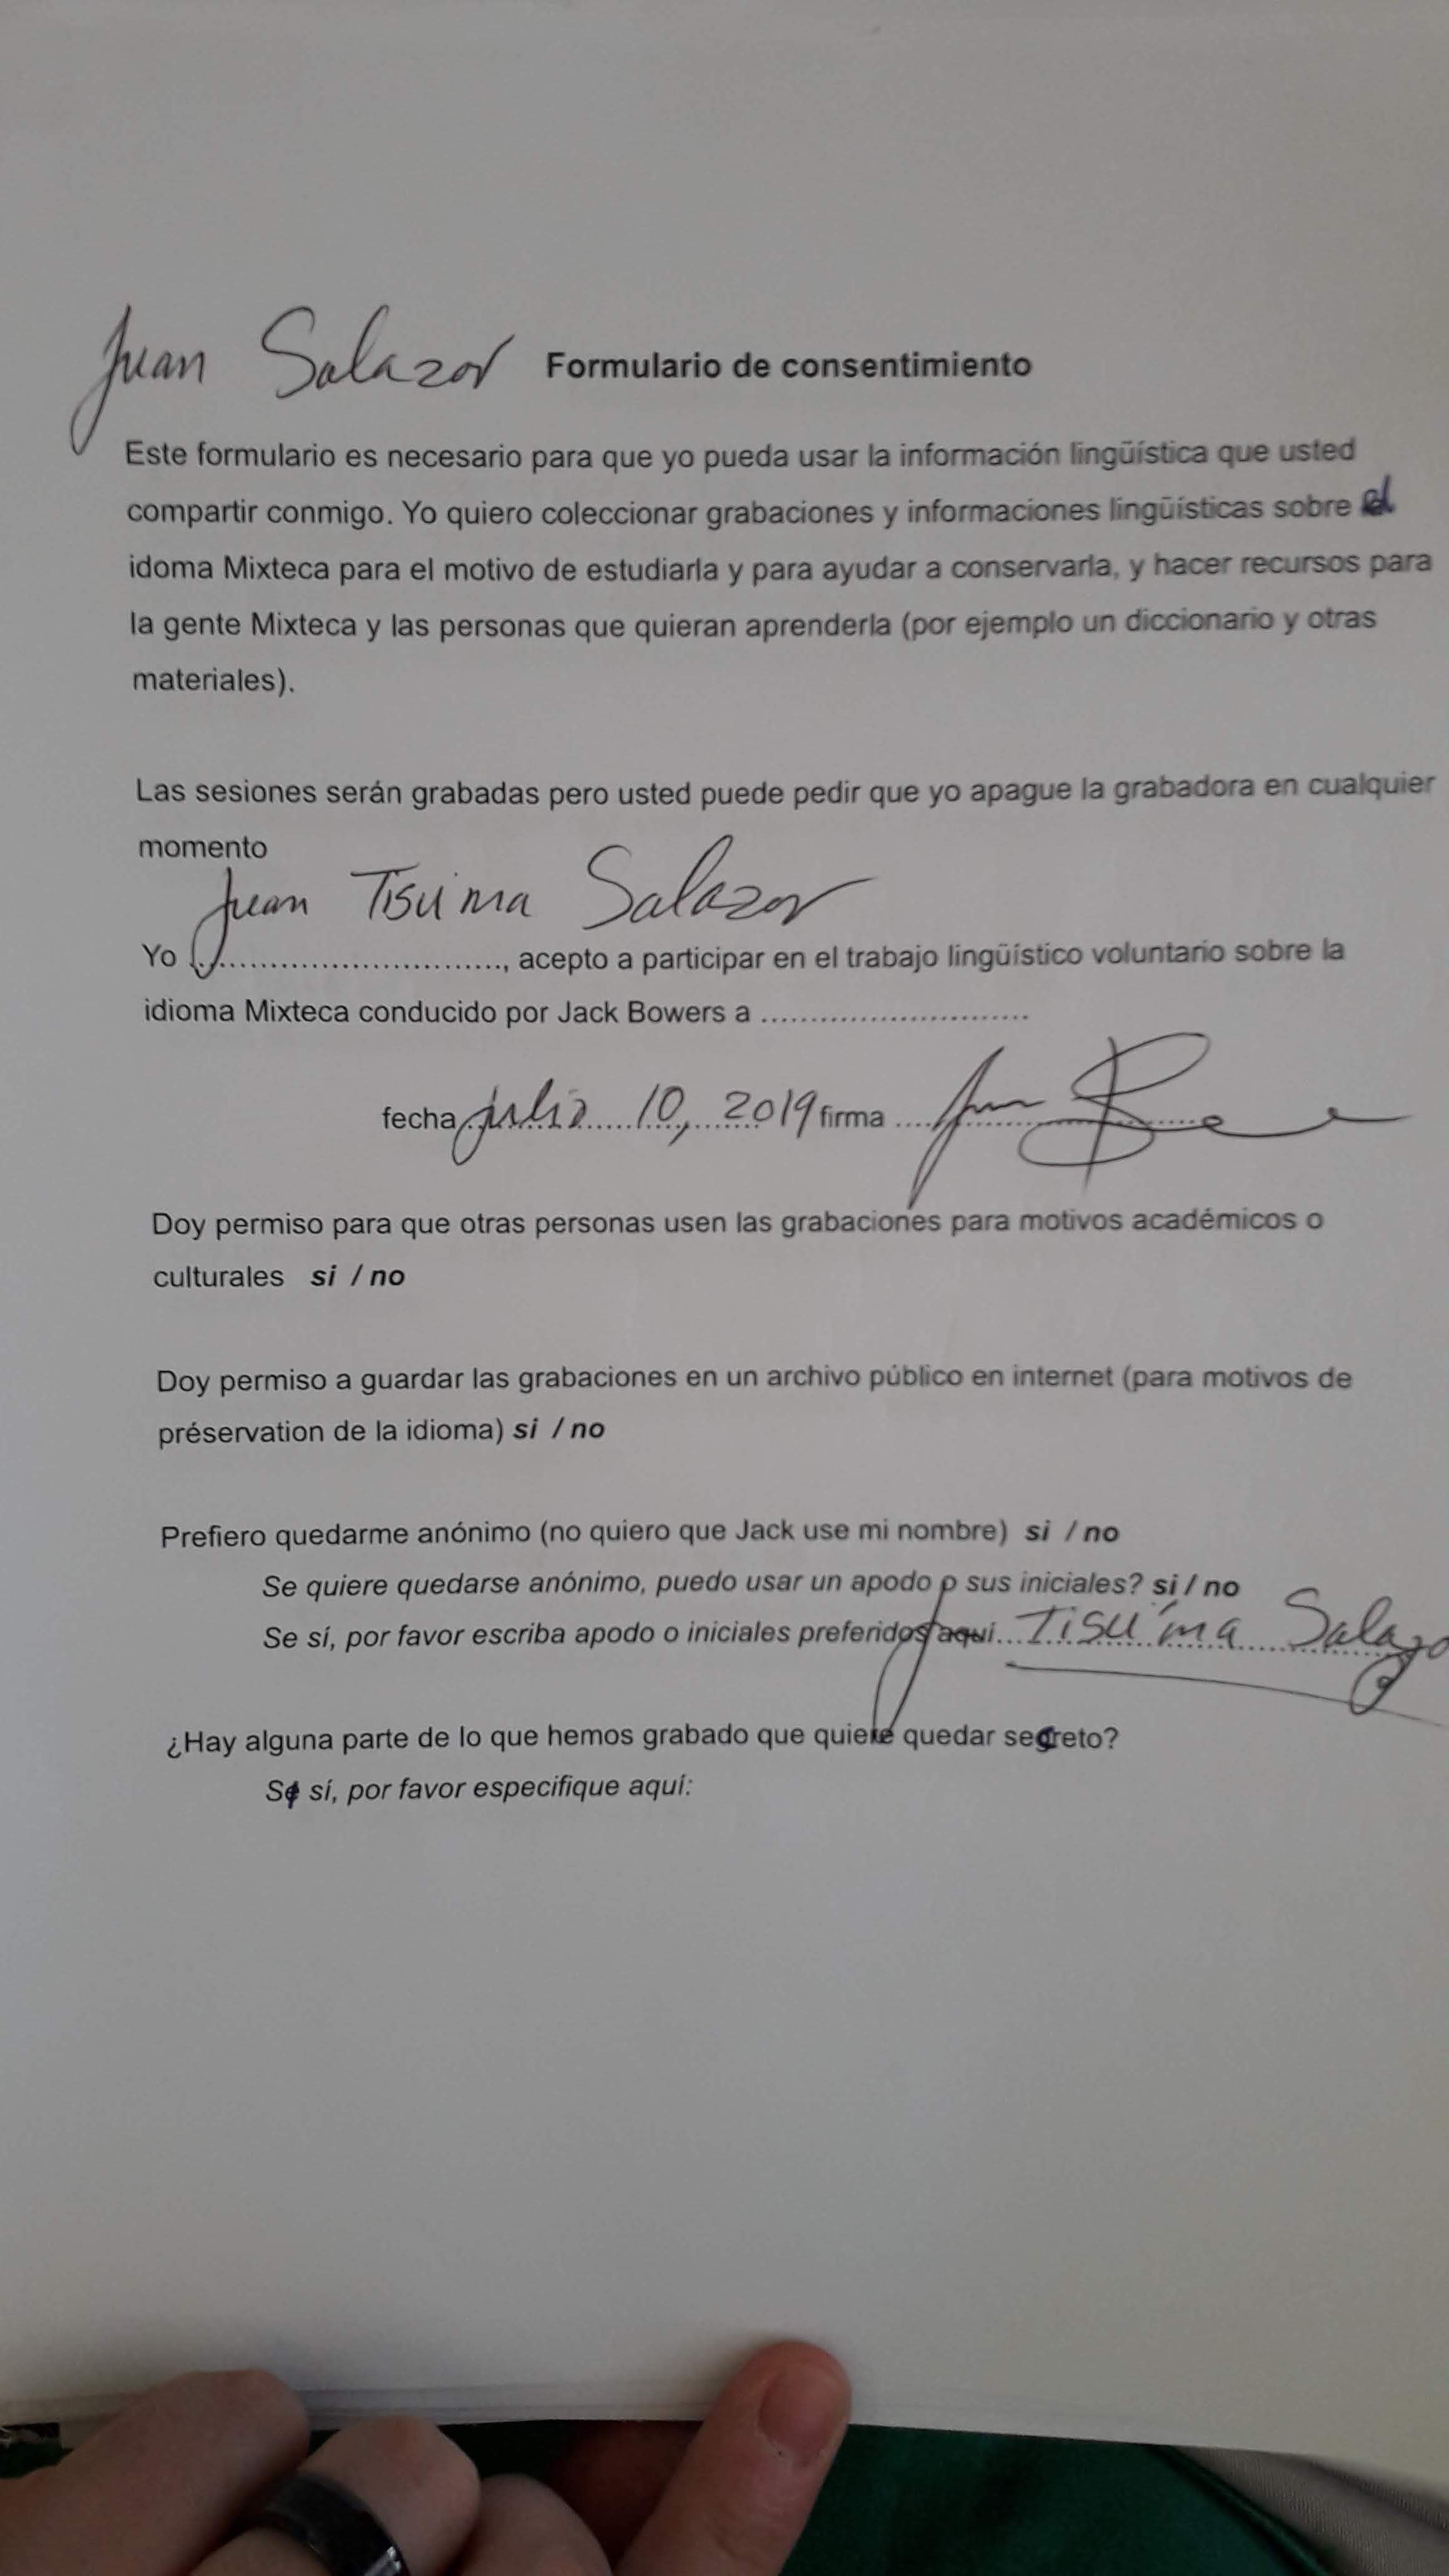 Juan Salazar Formulario de consentimiento
Este formulario es necesario para que yo pueda usar la información lingüística que usted
compartir conmigo. Yo quiero coleccionar grabaciones y informaciones lingüísticas sobre el
idoma Mixteca para el motivo de estudiarla y para ayudar a conservarla, y hacer recursos para
la gente Mixteca y las personas que quieran aprenderla (por ejemplo un diccionario y otras
materiales).
Las sesiones serán grabadas pero usted puede pedir que yo apague la grabadora en cualquier
momento
Juan Tisu'ma Salazar
Yo ............................., acepto a participar en el trabajo lingüístico voluntario sobre la
idioma Mixteca conducido por Jack Bowers a ............................
fecha julio 10, 2019 firma
Doy permiso para que otras personas usen las grabaciones para motivos académicos o
culturales si / no
Doy permiso a guardar las grabaciones en un archivo público en internet (para motivos de
préservation de la idioma) si / no
Prefiero quedarme anónimo (no quiero que Jack use mi nombre) si / no
Se quiere quedarse anónimo, puedo usar un apodo o sus iniciales? si / no
Se sí, por favor escriba apodo o iniciales preferidos aqui... Tisu'ma Salazo
¿Hay alguna parte de lo que hemos grabado que quiere quedar secreto?
Si sí, por favor especifique aquí: